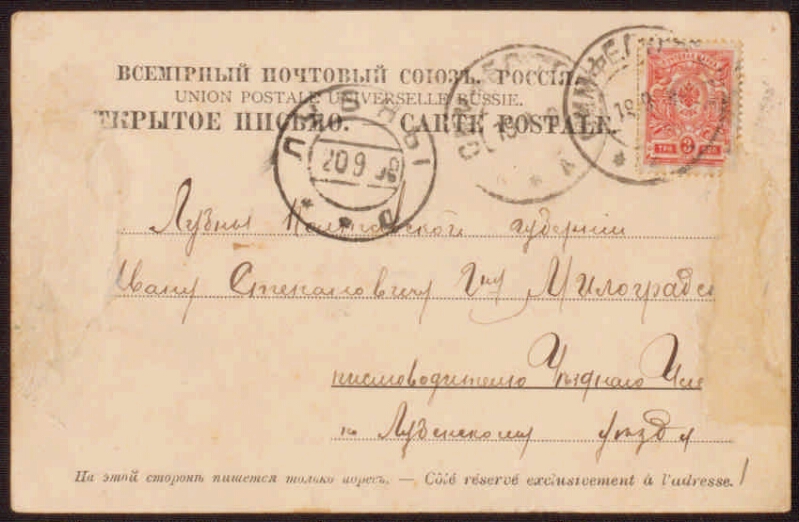 ВСЕМІРНЫЙ ПОЧТОВЫЙ СОЮЗЪ. РОССІЯ.
UNION POSTALE UNIVERSELLE RUSSIE.
ТКРЫТОЕ ПИСЬМО. CARTE POSTALE.
ЛУБНЫ
20 9 09
ТРИ 3
Лубны Полтавской губерніи
вану Степановичу Г-ну Милоградск
писмоводителю Уѣзднаго Чле
по Лубенскому уѣзду
На этой сторонѣ пишется только адресъ. — Côté réservé exclusivement à l'adresse.